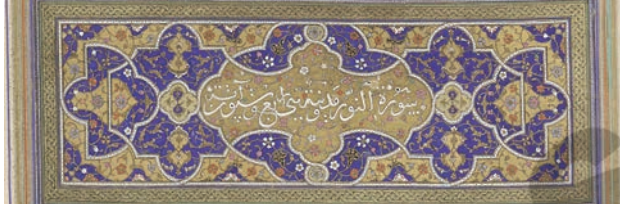 سورة النور مدنية اربع وستون